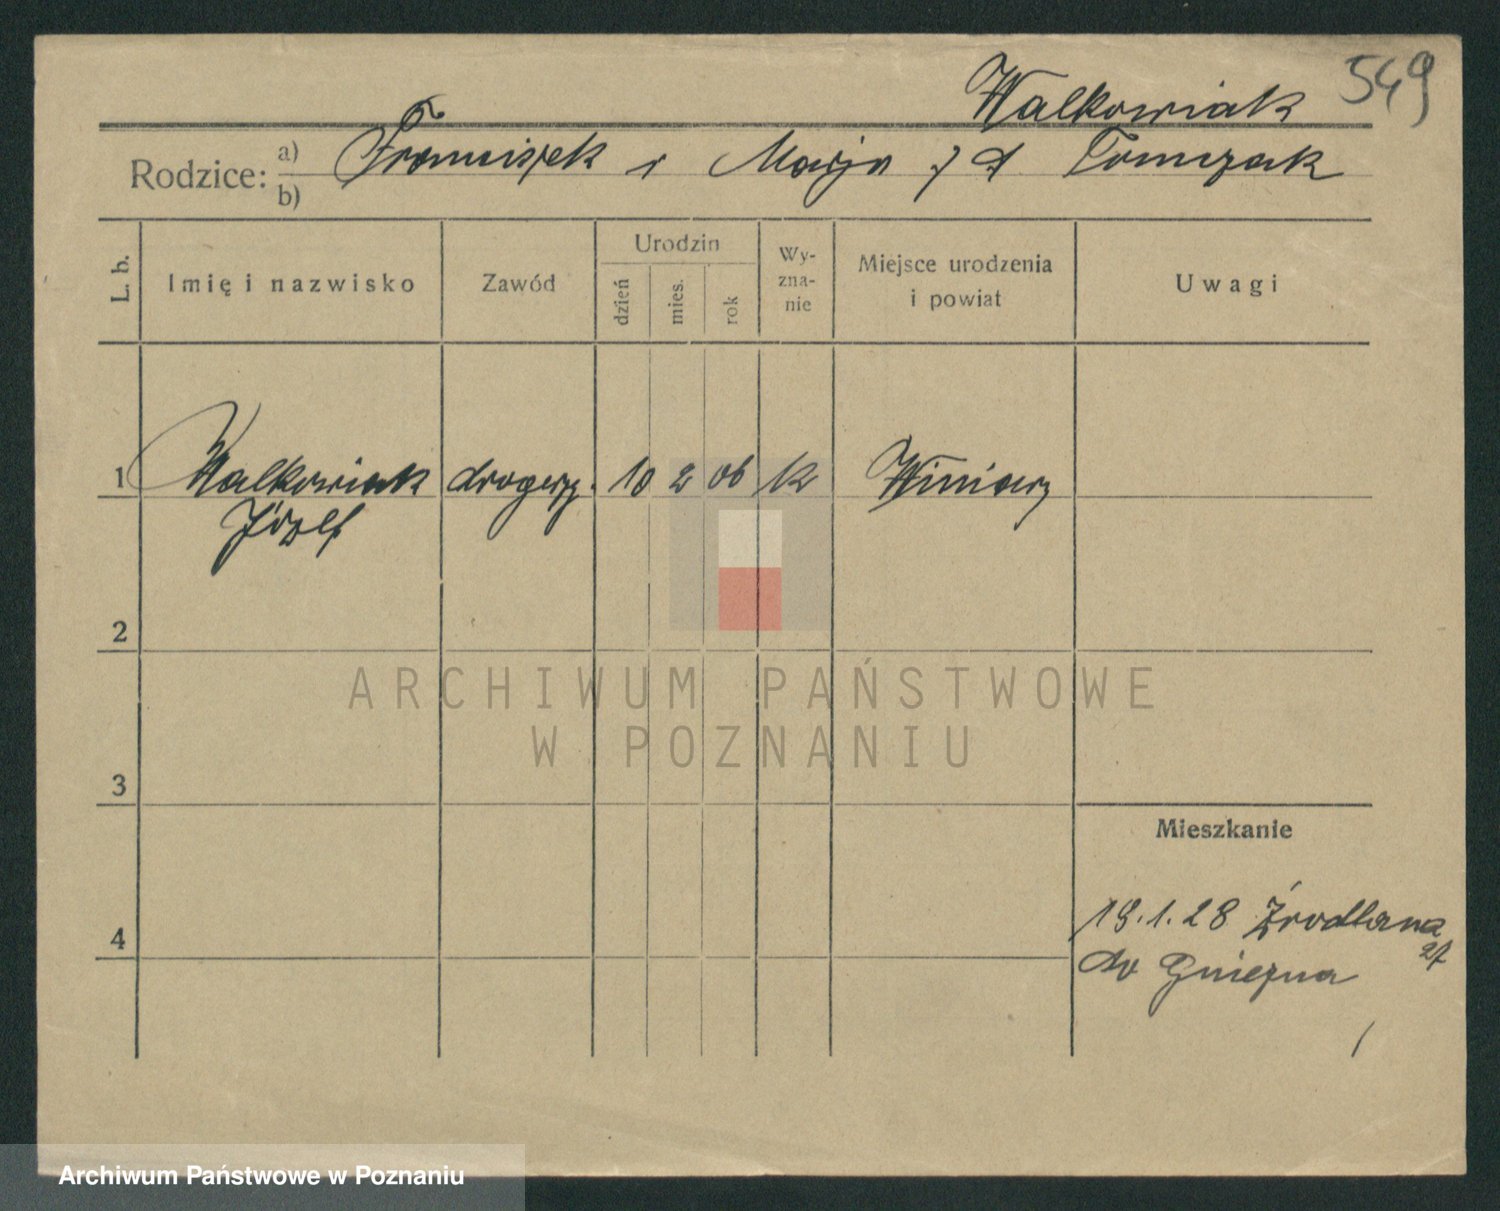 549
Walkowiak
Rodzice: a) b) Franciszek i Marja z d Tomczak
L. b. Imię i nazwisko Zawód Urodzin dzień mies. rok Wy-zna-nie Miejsce urodzenia i powiat Uwagi
1 Walkowiak drogerz. 10 2 06 k Winiary
Józef
2
ARCHIWUM PAŃSTWOWE
W POZNANIU
3
Mieszkanie
4
19.1.28 Źródlana
27
do Gniezna
Archiwum Państwowe w Poznaniu